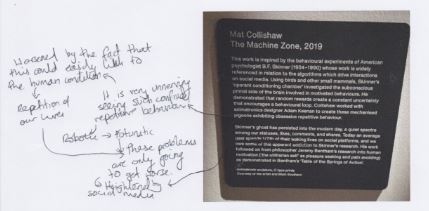 by the fact that
this could easily link to
the human condition
repetition of
our lives
It is very unnerving
seeing such confined
repetitive behaviour
Robotic → futuristic
these problems
are only going
to get worse
Highlighted
social media
Mat Collishaw
The Machine Zone, 2019
This work is inspired by the behavioural experiments of American
psychologist B.F. Skinner (1904–1990) whose work is widely
referenced in relation to the algorithms which drive interactions
on social media. Using birds and other small mammals, Skinner's
'operant conditioning chamber' investigated the subconscious
primal side of the brain involved in motivated behaviours. He
demonstrated that random rewards create a constant uncertainty
that encourages a behavioural loop. Collishaw worked with
animatronics designer Adam Keenan to create these mechanised
pigeons exhibiting obsessive repetitive behaviour.
Skinner's ghost has persisted into the modern day, a quiet spectre
among our statuses, likes, comments, and shares. Today an average
user spends of their waking lives on social platforms, and we
owe some of this apparent addiction to Skinner's research. His work
followed on from philosopher Jeremy Bentham's research into human
motivation ('the utilitarian self' as pleasure seeking and pain avoiding)
as demonstrated in Bentham's 'Table of the Springs of Action'.
Courtesy of the artist and